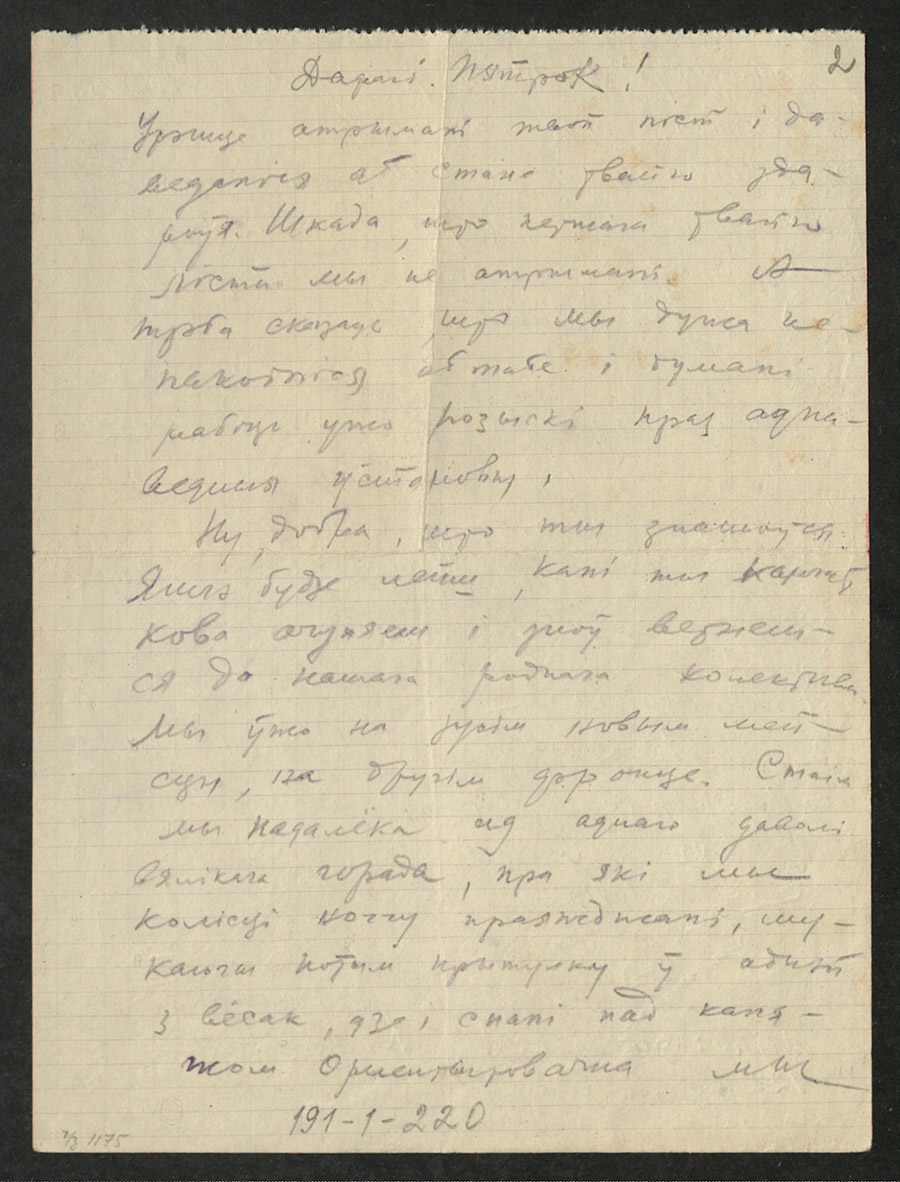 2
Дарагі Пятрок!
Урэшце атрымалі твой ліст і да-
ведаліся аб стане твайго зда-
роўя. Шкада, што першага твайго
ліста мы не атрымалі. А
трэба сказаць, што мы дужа не-
пакоіліся аб табе і думалі
рабіць ужо розыскі праз адпа-
ведныя ўстановы.
Ну, добра, што ты знайшоўся.
Яшчэ будзе лепш, калі ты канчат
кова ачуняеш і зноў вернеш-
ся да нашага роднага колектыва
Мы ўжо на зусім новым мей-
сцы, на другім фронце. Стаім
мы надалёка ад аднаго даволі
вялікага горада, пра які мы
колісці ноччу праязджалі, шу-
каючы потым прытулку ў адной
з вёсак, дзе і спалі пад
Орментыровачна мы
191-1-220
1175